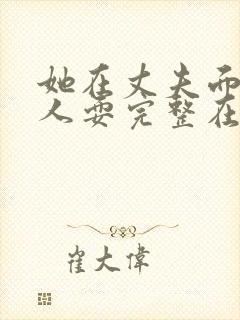 她在丈夫而
人耍完整在
崔大偉